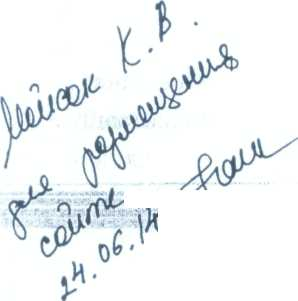 Мойсак К. В.
для размещения
сайте
24.06.14